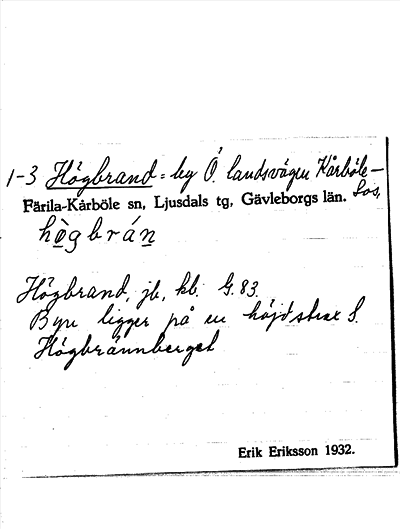 1-3 Högbrand = by Ö. landsvägen Kårböle-
Los,
Färila-Kårböle sn, Ljusdals tg, Gävleborgs län.
hògbrán
Högbrand, jb, kb. G.83.
Byn ligger på en höjdsträ S.
Högbrännberget
Erik Eriksson 1932.